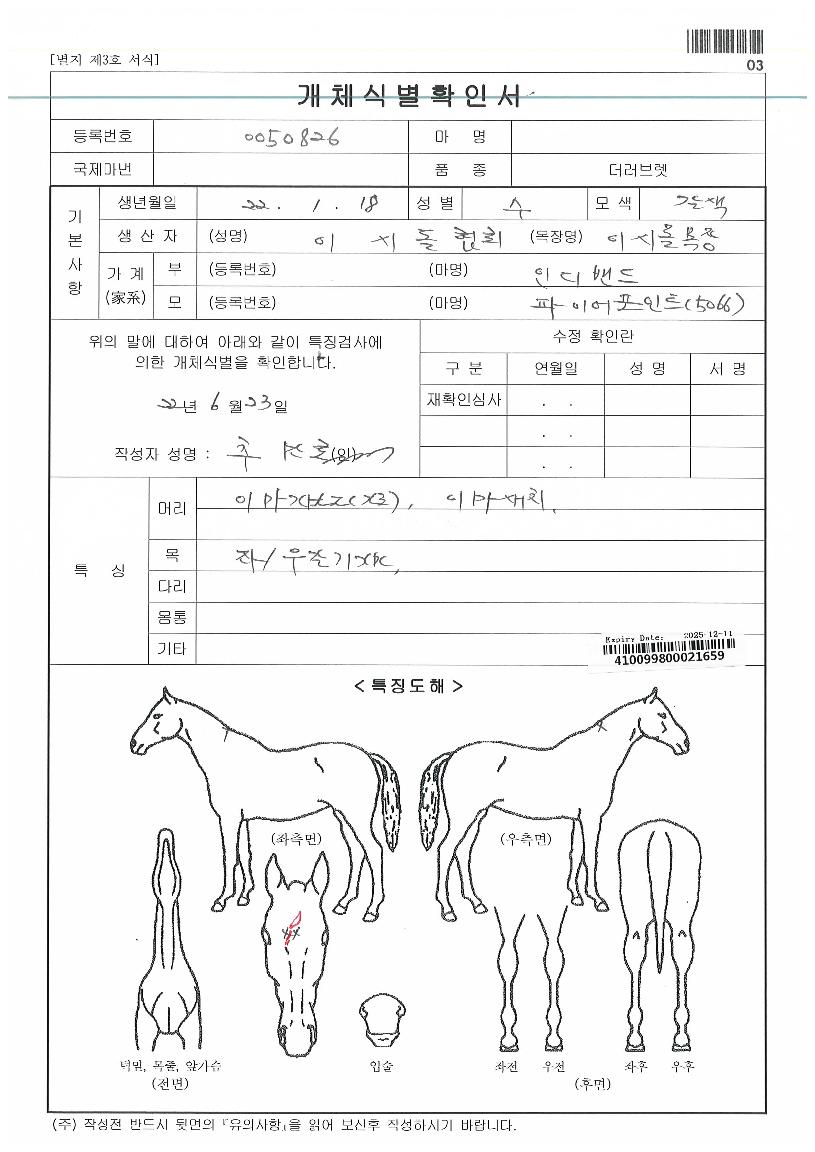 [별지 제3호 서식]
03
개체식별확인서
등록번호 0050826 마 명
국제마번 품 종 더러브렛
기본사항
생년월일 22. 1. 18 성 별 수 모 색
생 산 자 (성명) 이 시 돌 협회 (목장명) 이시돌목장
가 계 (家系) 부 (등록번호) (마명) 인디밴드
모 (등록번호) (마명) 파이어포인트(5066)
위의 말에 대하여 아래와 같이 특징검사에
의한 개체식별을 확인합니다.
22년 6월 23일
작성자 성명 : (인)
수정 확인란
구 분 연월일 성 명 서 명
재확인심사 . .
. .
. .
특 징
머리
목
다리
몸통
기타
Expiry Date: 2025-12-11
410099800021659
< 특징도해 >
(좌측면) (우측면)
턱밑, 목줄, 앞가슴 입술 좌전 우전 좌후 우후
(전면) (후면)
(주) 작성전 반드시 뒷면의 『유의사항』을 읽어 보신후 작성하시기 바랍니다.